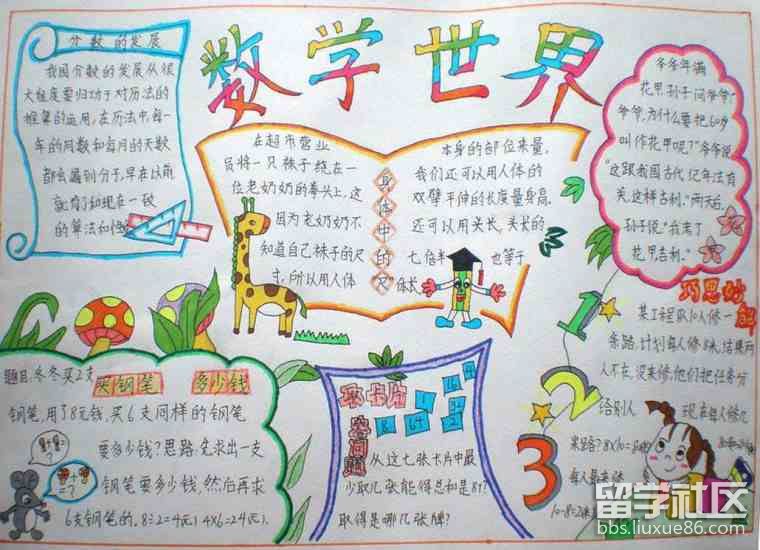 数学世界
分数的发展
我国分数的发展从很
大程度要归功于对历法的
框架的运用,在历法中,每一
年的月数和每月的天数
都会遇到分子,早在以前
就有了和现在一致
的算法和
在超市营业
员将一只袜子绕在一
位老奶奶的拳头上,这
因为老奶奶不
知道自己袜子的尺
寸,所以用人体
身体中的尺
本身的部位来量,
我们还可以用人体的
双臂平伸的长度量身高,
还可以用头长,头长的
七倍半 也等于
身长
爷爷年满
花甲,孙子问爷爷:"
爷爷,为什么要把60岁
叫作花甲呢?"爷爷说
"这跟我国古代纪年法有
关,这样吉利."两天后,
孙子说"我若了
花甲吉利."
题目:冬冬买2支
买钢笔 多少钱
钢笔,用了8元钱,买6支同样的钢笔
要多少钱?思路:先求出一支
钢笔要多少钱,然后再求
6支钢笔的.8÷2=4(元) 4×6=24(元)
取卡片
问题
从这七张卡片中最
少取几张能得总和是87?
取得是哪几张牌?
1
2
3
巧思妙解
某工程队10人修一
条路,计划每人修8米,结果两
人不在,没来修,他们把任务分
给别人 现在每人修几
米路?8×10=80(米)
每人是在
10-8=2(米)
留学社区
bbs.liuxue86.com